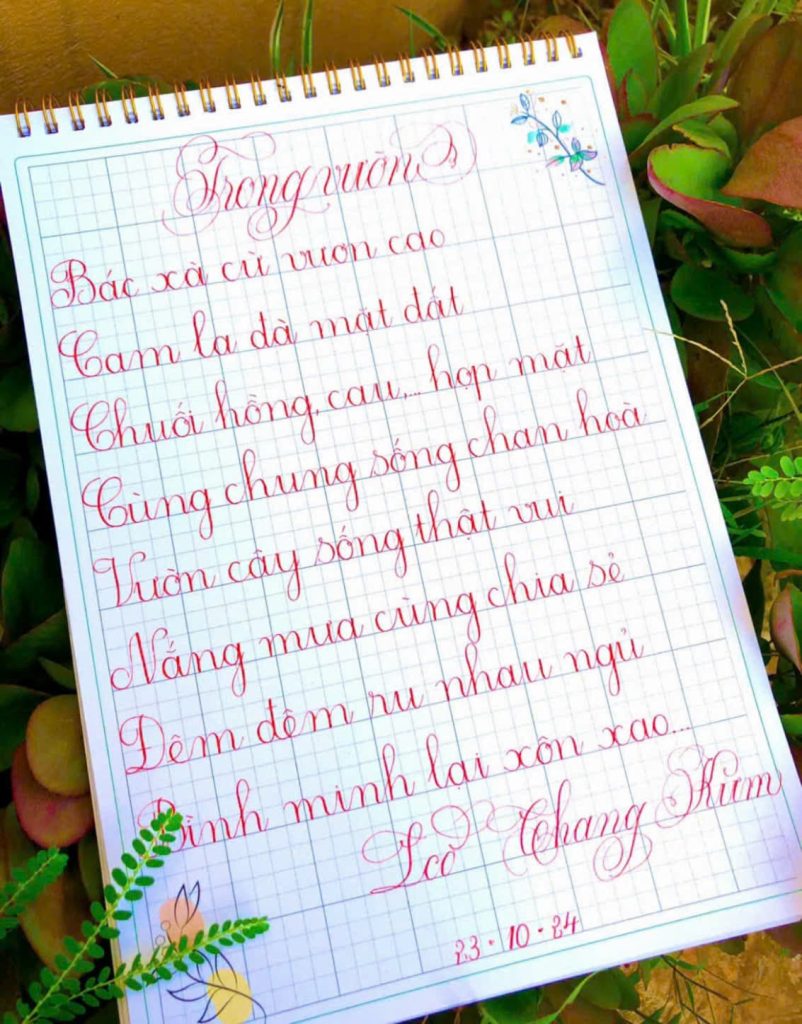 Trong vườn
Bác xà cừ vươn cao
Cam la đà mặt đất
Chuối hồng, cau,... họp mặt
Cùng chung sống chan hoà
Vườn cây sống thật vui
Nắng mưa cùng chia sẻ
Đêm đêm ru nhau ngủ
Bình minh lại xôn xao...
Thang Kưm
23 • 10 • 24